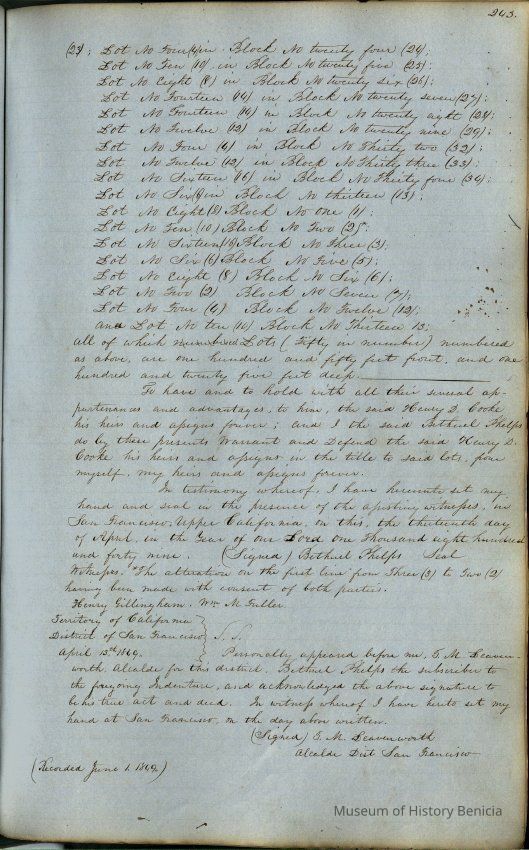 243.
(23); Lot No Four (4) in Block No twenty four (24);
Lot No Ten (10) in Block No twenty five (25);
Lot No Eight (8) in Block No twenty six (26);
Lot No Fourteen (14) in Block No twenty seven (27);
Lot No Fourteen (14) in Block No twenty eight (28);
Lot No Twelve (12) in Block No twenty nine (29);
Lot No Four (4) in Block No Thirty two (32);
Lot No Twelve (12) in Block No Thirty three (33);
Lot No Sixteen (16) in Block No Thirty four (34);
Lot No Six (6) in Block No thirteen (13);
Lot No Eight (8) Block No One (1);
Lot No Ten (10) Block No Two (2);
Lot No Sixteen (16) Block No Three (3);
Lot No Six (6) Block No Five (5);
Lot No Eight (8) Block No Six (6);
Lot No Two (2) Block No Seven (7);
Lot No Four (4) Block No Twelve (12);
and Lot No ten (10) Block No Thirteen 13;
all of which numbered Lots (Fifty in number) numbered
as above, are one hundred and fifty feet front, and one
hundred and twenty five feet deep.
To have and to hold with all their several ap-
purtenances and advantages, to him, the said Henry D. Cooke
his heirs and assigns forever; and I the said Bethuel Phelps
do by these presents Warrant and Defend the said Henry D.
Cooke his heirs and assigns in the title to said lots, from
myself, my heirs and assigns forever.
In testimony whereof, I have hereunto set my
hand and seal in the presence of the attesting witnesses, in
San Francisco, Upper California, on this, the thirteenth day
of April, in the Year of our Lord one Thousand eight hundred
and forty nine. (Signed) Bethuel Phelps Seal
Witnesses. "The alteration on the first line from Three (3) to Two (2)
having been made with consent of both parties.
Henry Gillingham. Wm M. Fuller
Territory of California
District of San Francisco S.S.
April 13th 1849. Personally appeared before me, T. M. Leaven-
worth, Alcalde for this district, Bethuel Phelps the subscriber to
the foregoing Indenture, and acknowledged the above signature to
be his true act and deed. In witness whereof I have hereto set my
hand at San Francisco, on the day above written.
(Signed) T. M. Leavenworth
Alcalde Dist San Francisco
(Recorded June 1. 1849)
Museum of History Benicia